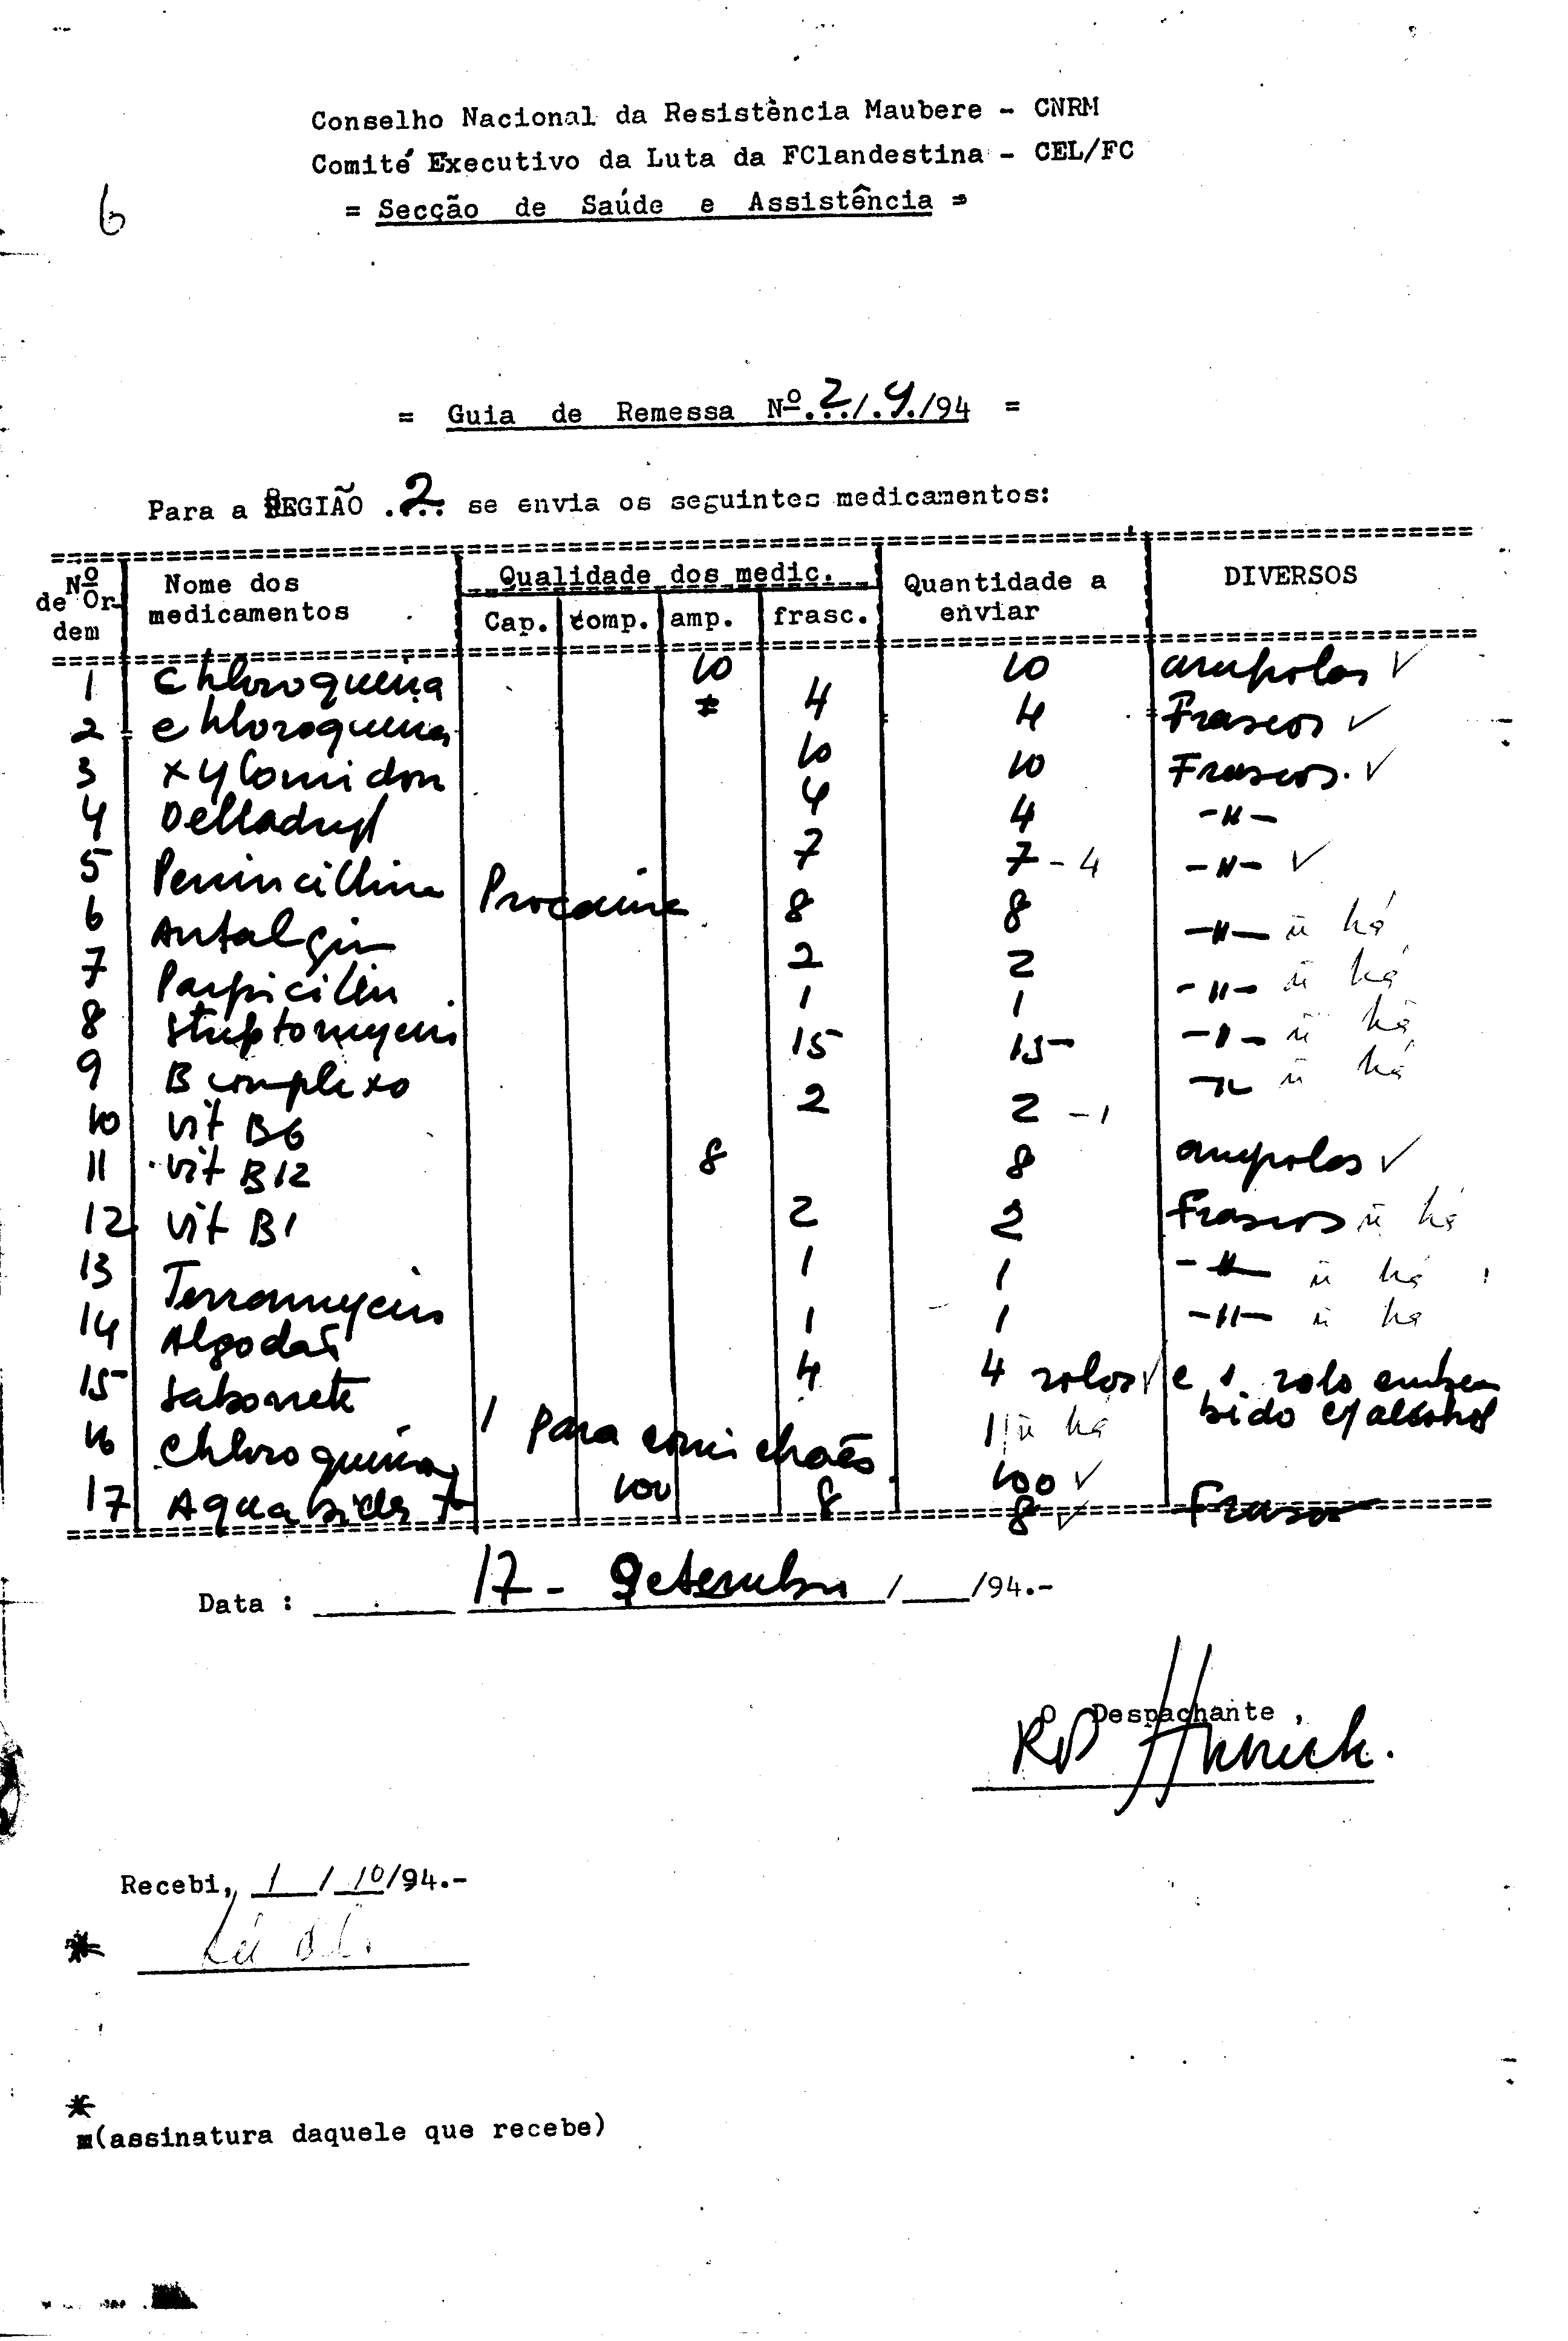 Conselho Nacional da Resistência Maubere - CNRM
Comité Executivo da Luta da FClandestina - CEL/FC
6
= Secção de Saúde e Assistência =
= Guia de Remessa Nº 2/9/94 =
Para a REGIÃO 2 se envia os seguintes medicamentos:
Nº de Ordem | Nome dos medicamentos | Qualidade dos medic. | Quantidade a enviar | DIVERSOS
Cap. | comp. | amp. | frasc.
1 Chloroquina 10 10 ampolas ✓
2 Chloroquina 4 4 Frascos ✓
3 Xylomidon 10 10 Frascos. ✓
4 Delladryl 4 4 -"-
5 Penincillina Procaine 7 7 - 4 -"- ✓
6 Antalgin 8 8 -"- ñ há
7 2 2 -"- ñ há
8 Streptomycin 1 1 -"- ñ há
9 B complexo 15 15 -"- ñ há
10 Vit B6 2 2 - 1
11 Vit B12 8 8 ampolas ✓
12 Vit B1 2 2 Frascos ñ há
13 Terramycin 1 1 -"- ñ há
14 Algodão 1 1 -"- ñ há
4 4 rolos ✓ e 1 rolo embe
bido c/ alcohol
15 Sabonete 1 Para comichões 1 ñ há
16 Chloroquina 100 100 ✓
17 Aqua 8 8 ✓ Frasco
Data : 17 - Setembro / /94.-
O Despachante ,
Recebi, 1 / 10/94.-
*
*
(assinatura daquele que recebe)